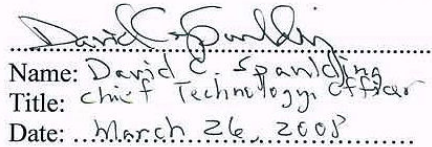 David C. Spaulding
Name: David C. Spaulding
Title: Chief Technology Officer
Date: March 26, 2008